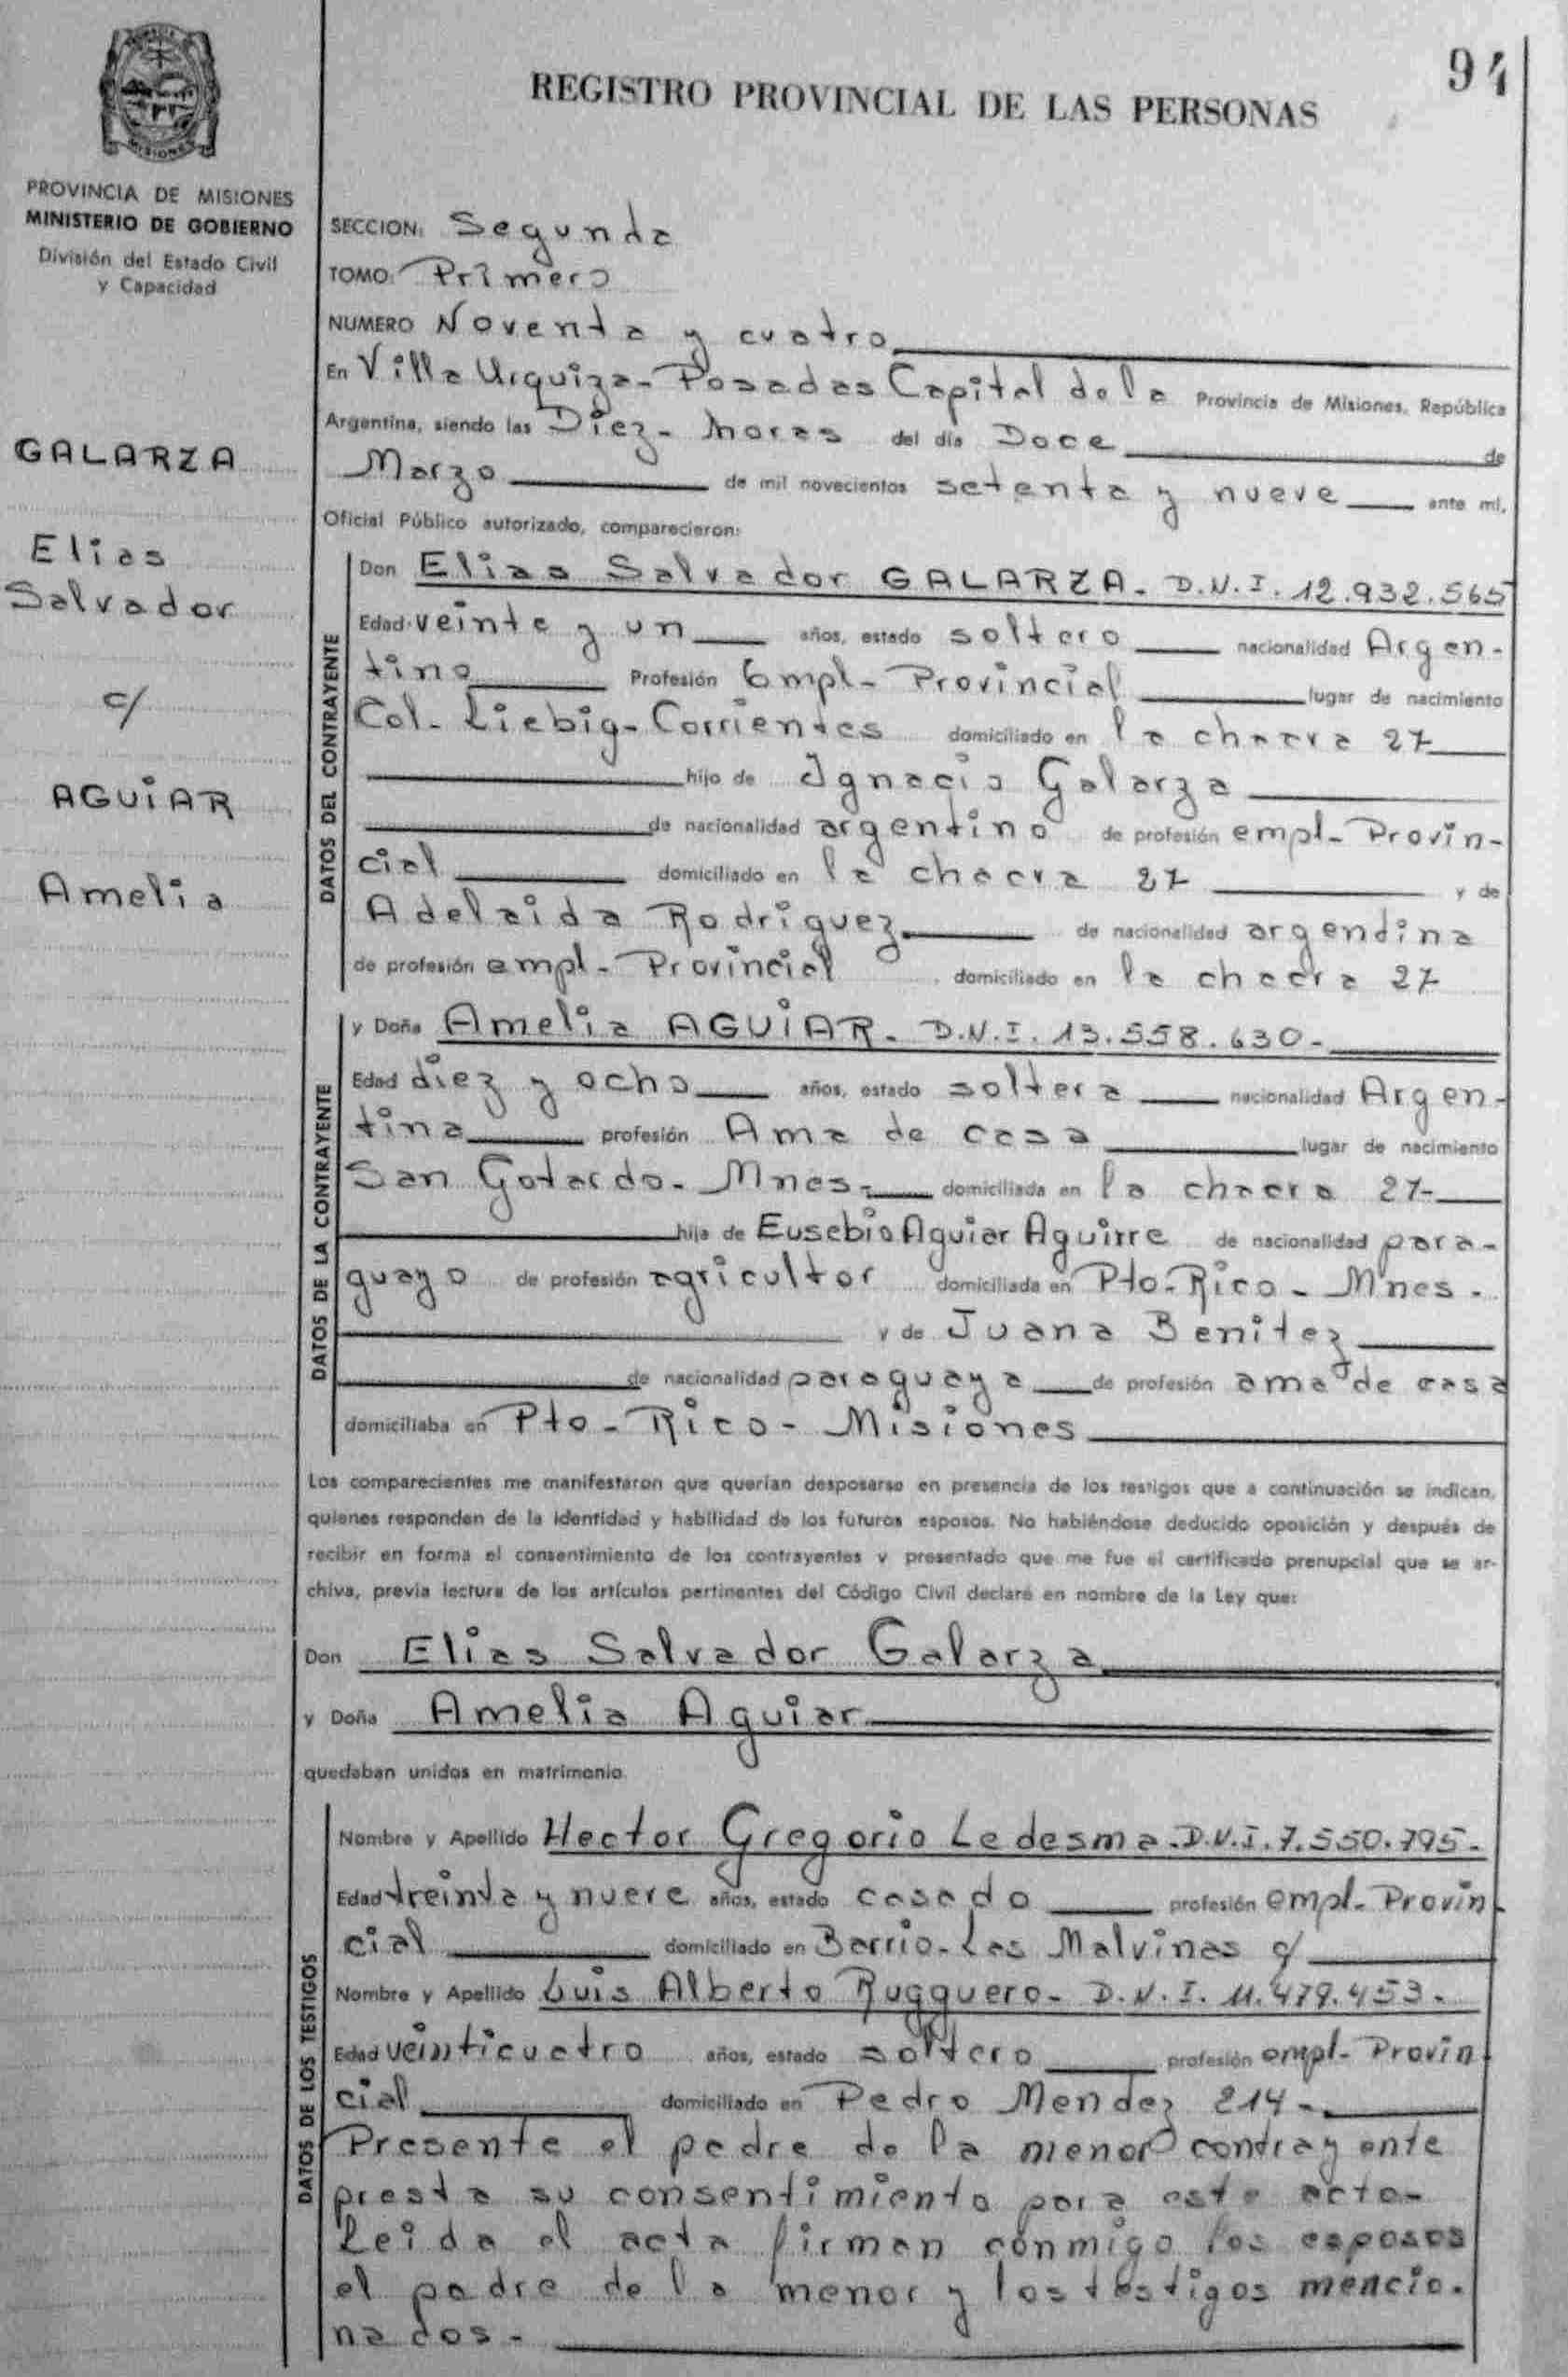 94
REGISTRO PROVINCIAL DE LAS PERSONAS
MISIONES
PROVINCIA DE MISIONES
MINISTERIO DE GOBIERNO
División del Estado Civil
y Capacidad
GALARZA
Elias
Salvador
c/
AGUIAR
Amelia
SECCION: Segunda
TOMO: Primero
NUMERO Noventa y cuatro
En Villa Urquiza - Posadas Capital de la Provincia de Misiones, República
Argentina, siendo las Diez - horas del día Doce de
Marzo de mil novecientos setenta y nueve ante mí,
Oficial Público autorizado, comparecieron:
DATOS DEL CONTRAYENTE
Don Elias Salvador GALARZA - D.N.I. 12.932.565
Edad veinte y un años, estado soltero nacionalidad Argen-
tino Profesión Empl - Provincial lugar de nacimiento
Col - Liebig - Corrientes domiciliado en la chacra 27
hijo de Ignacio Galarza
de nacionalidad argentino de profesión empl - Provin-
cial domiciliado en la chacra 27 y de
Adelaida Rodriguez de nacionalidad argentina
de profesión empl - Provincial domiciliado en la chacra 27
DATOS DE LA CONTRAYENTE
y Doña Amelia AGUIAR - D.N.I. 13.558.630 -
Edad diez y ocho años, estado soltera nacionalidad Argen-
tina profesión Ama de casa lugar de nacimiento
San Gotardo - Mnes - domiciliada en la chacra 27 -
hija de Eusebio Aguiar Aguirre de nacionalidad para-
guayo de profesión agricultor domiciliada en Pto - Rico - Mnes -
y de Juana Benitez
de nacionalidad paraguaya de profesión ama de casa
domiciliaba en Pto - Rico - Misiones
Los comparecientes me manifestaron que querían desposarse en presencia de los testigos que a continuación se indican,
quienes responden de la identidad y habilidad de los futuros esposos. No habiéndose deducido oposición y después de
recibir en forma el consentimiento de los contrayentes y presentado que me fue el certificado prenupcial que se ar-
chiva, previa lectura de los artículos pertinentes del Código Civil declaré en nombre de la Ley que:
Don Elias Salvador Galarza
y Doña Amelia Aguiar
quedaban unidos en matrimonio.
DATOS DE LOS TESTIGOS
Nombre y Apellido Hector Gregorio Ledesma - D.N.I. 7.550.795 -
Edad treinta y nueve años, estado casado profesión empl - Provin
cial domiciliado en Barrio - Las Malvinas c/
Nombre y Apellido Luis Alberto Rugguero - D.N.I. 11.479.453 -
Edad veinticuatro años, estado soltero profesión empl - Provin
cial domiciliado en Pedro Mendez 214 -
Presente el padre de la menor contrayente
presta su consentimiento para este acto -
Leida el acta firman conmigo los esposos
el padre de la menor y los testigos mencio-
nados -